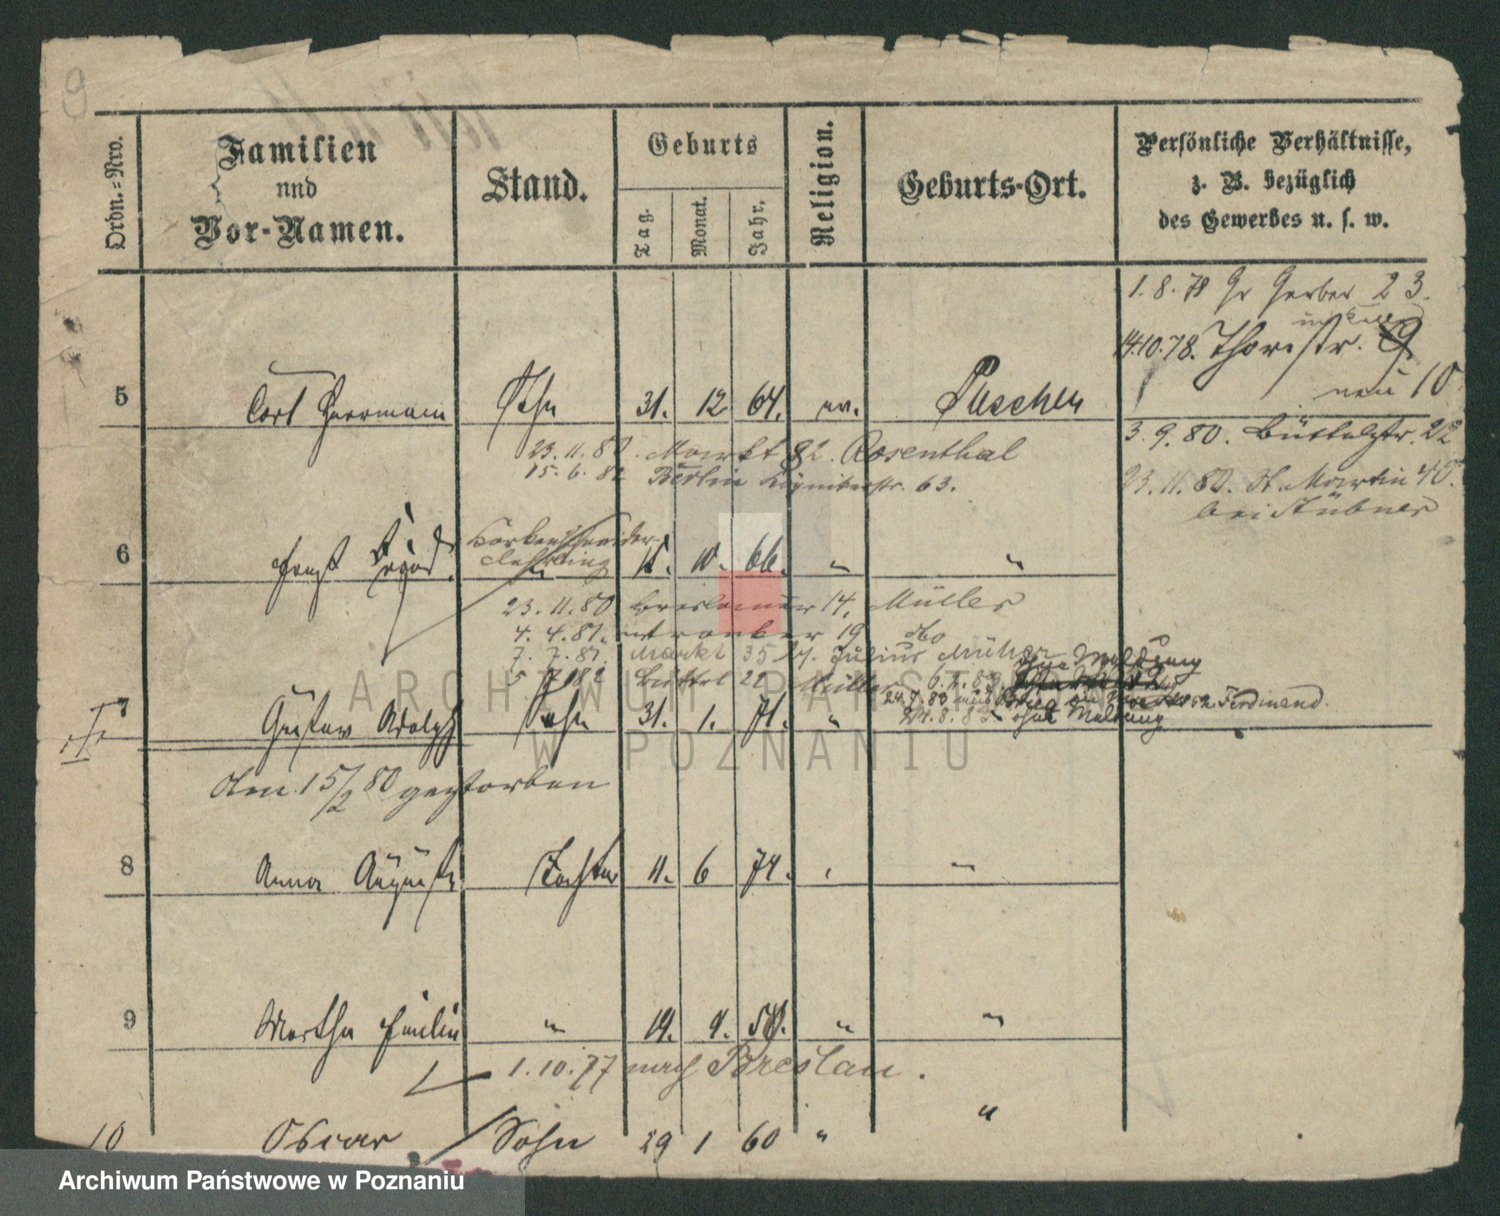 9
Ordn.=Nro.
Familien
und
Vor-Namen.
Stand.
Geburts
Tag.
Monat.
Jahr.
Religion.
Geburts-Ort.
Persönliche Verhältnisse,
z. B. bezüglich
des Gewerbes u. s. w.
1.8.78 Gr Gerber 23.
14.10.78. Thorstr. 9
neu 10
5 Carl Herrmann Sohn 31. 12 64. ev. Puschen
3.9.80. Büttelstr. 22
23.11.80. Markt 82. Rosenthal
15.6.82 Berlin 63.
23.11.80. St. Martin 40.
bei Hübner
6 Ernst 10. 66. " "
23.11.80 Breslauer 14, Müller
4.4.81. Wronker 19 do
7.7.81. Markt 35 Julius Müller
Büttel 22 Müller ohne Meldung
Ferdinand.
24.8.83 ohne Meldung
7 Gustav Adolph Sohn 31. 1. 71. "
Am 15/2 80 gestorben
8 Anna Auguste Tochter 11. 6 74. "
9 Martha Paulin " 19. 9. 58. " "
1.10.77 nach Breslau.
10 Oscar Sohn 29 1 60 " "
ARCHIWUM PAŃSTWOWE
W POZNANIU
Archiwum Państwowe w Poznaniu